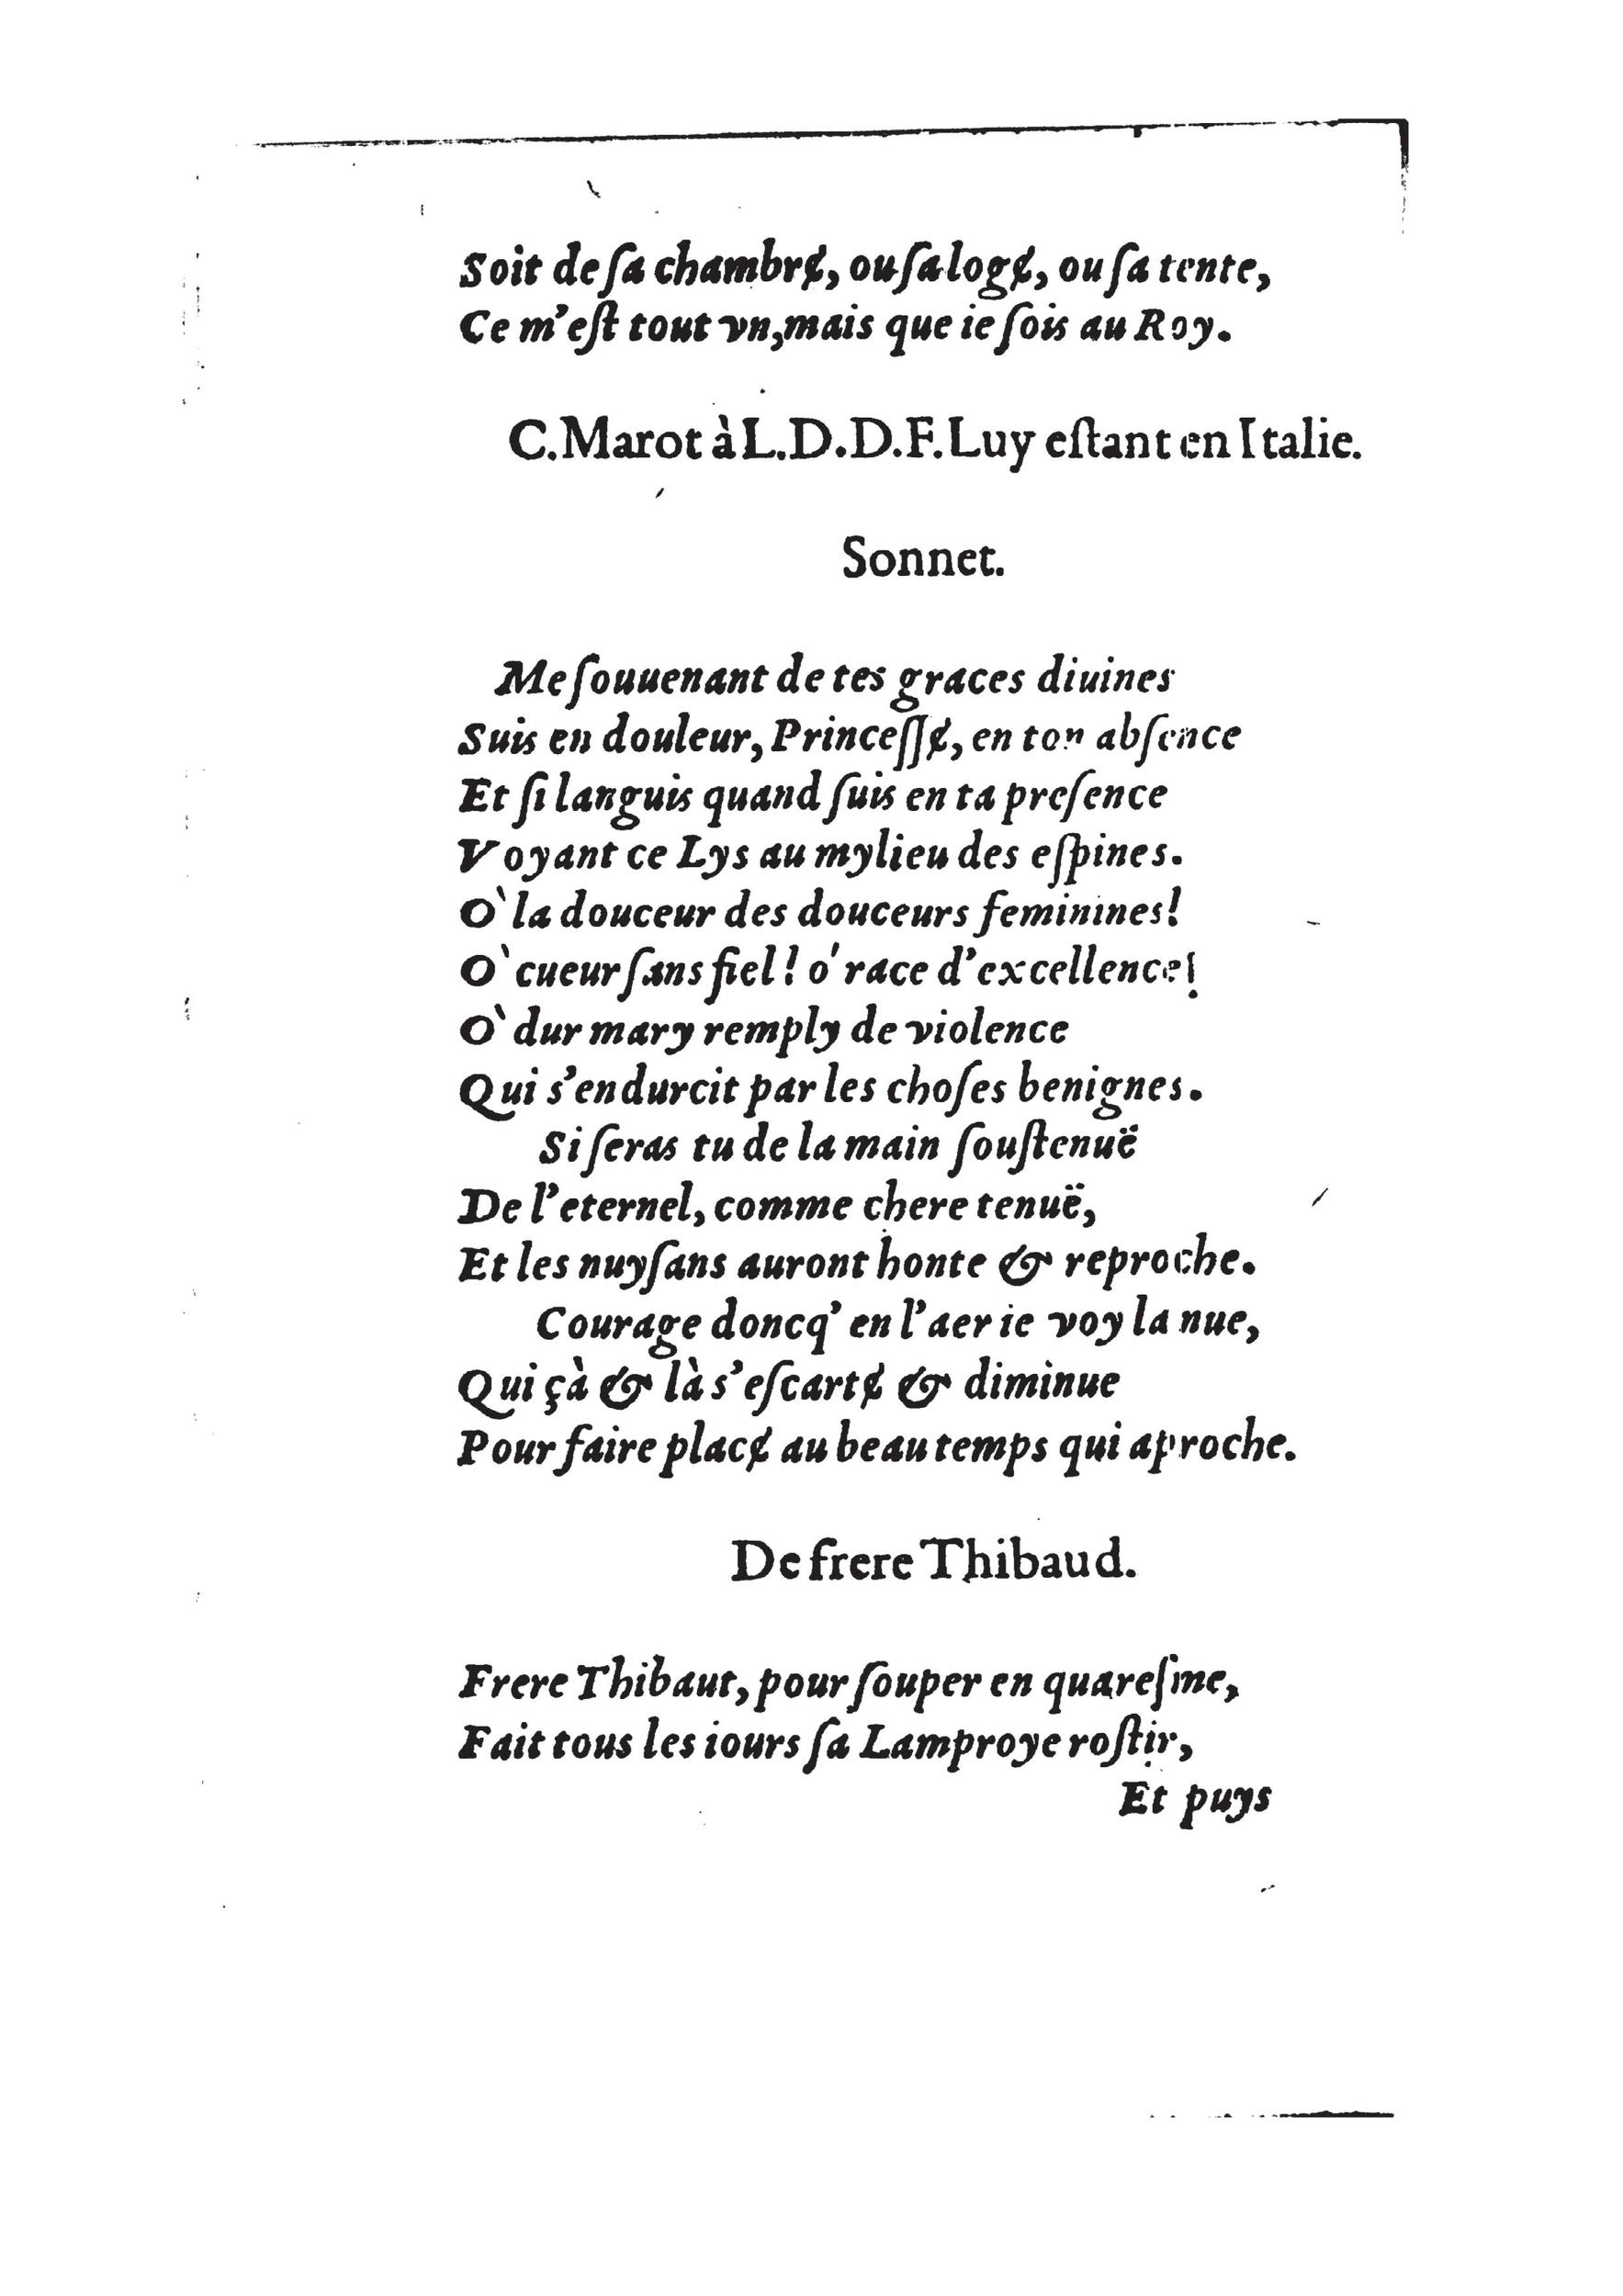 Soit de ſa chambrɇ, ou ſa logɇ, ou ſa tente,
Ce m'eſt tout vn, mais que ie ſois au Roy.
C. Marot à L. D. D. F. Luy eſtant en Italie.
Sonnet.
Me ſouuenant de tes graces diuines
Suis en douleur, Princeſſɇ, en ton abſence
Et ſi languis quand ſuis en ta preſence
Voyant ce Lys au mylieu des eſpines.
O` la douceur des douceurs feminines!
O` cueur ſans fiel! o' race d'excellence!
O` dur mary remply de violence
Qui s'endurcit par les choſes benignes.
Si ſeras tu de la main ſouſtenuë
De l'eternel, comme chere tenuë,
Et les nuyſans auront honte & reproche.
Courage doncq' en l'aer ie voy la nue,
Qui çà & là s'eſcartɇ & diminue
Pour faire placɇ au beau temps qui aproche.
De frere Thibaud.
Frere Thibaut, pour ſouper en quareſme,
Fait tous les iours ſa Lamproye roſtir,
Et puys